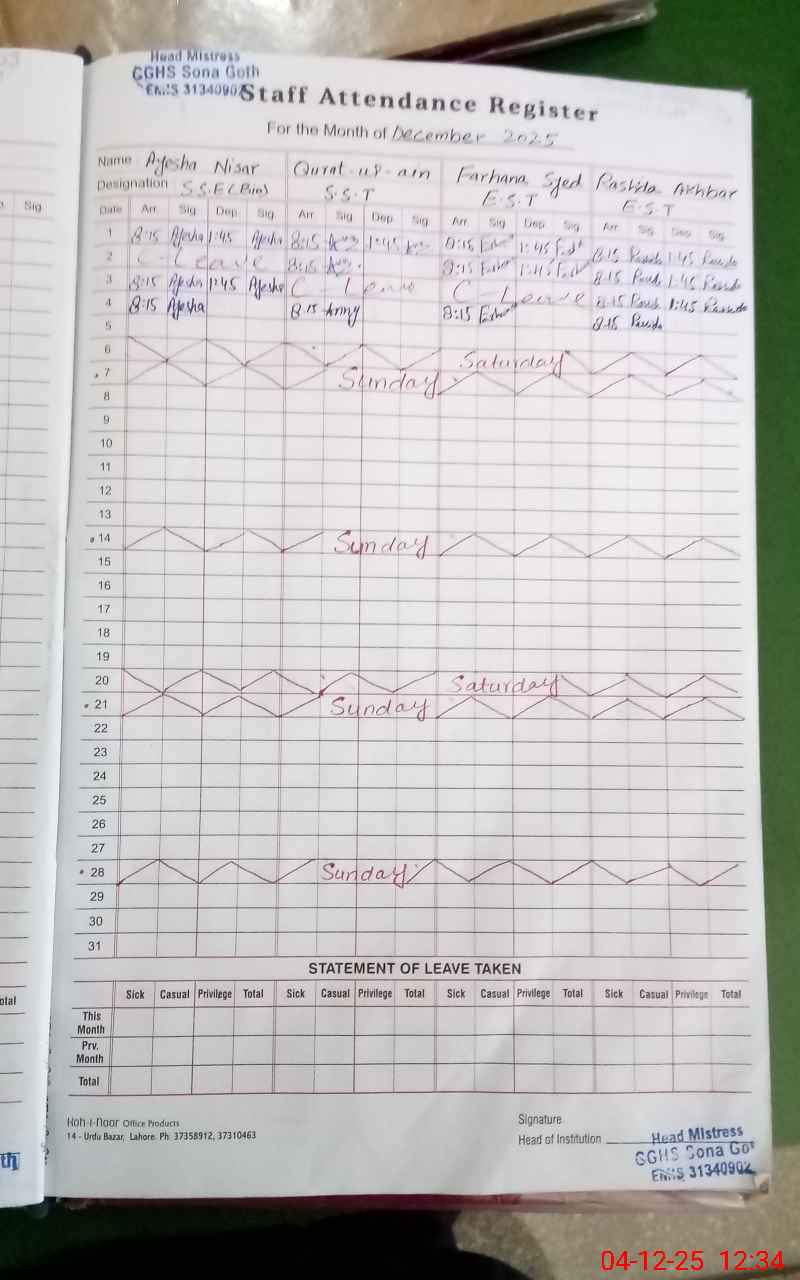 Head Mistress
GGHS Sona Goth
EMIS 31340902
Staff Attendance Register
For the Month of December 2025
Name Ayesha Nisar Qurat-ul-ain Farhana Syed Rashida Akhbar
Designation S.S.E(Bio) S.S.T E.S.T E.S.T
Date Arr Sig Dep Sig Arr Sig Dep Sig Arr Sig Dep Sig Arr Sig Dep Sig
1 8:15 Ayesha 1:45 Ayesha 8:15 1:45 8:15 1:45 8:15 1:45
2 C-Leave 8:15 8:15 1:45 8:15 1:45
3 8:15 Ayesha 1:45 Ayesha C-Leave C-Leave 8:15 1:45
4 8:15 Ayesha 8:15 8:15 8:15
5
6 Saturday
7 Sunday
8
9
10
11
12
13
14 Sunday
15
16
17
18
19
20 Saturday
21 Sunday
22
23
24
25
26
27
28 Sunday
29
30
31
STATEMENT OF LEAVE TAKEN
Sick Casual Privilege Total Sick Casual Privilege Total Sick Casual Privilege Total Sick Casual Privilege Total
This Month
Prv. Month
Total
Koh-i-noor Office Products
14 - Urdu Bazar, Lahore. Ph: 37358912, 37310463
Signature
Head of Institution
Head Mistress
GGHS Sona Got
EMIS 31340902
Sig
otal
th
04-12-25 12:34